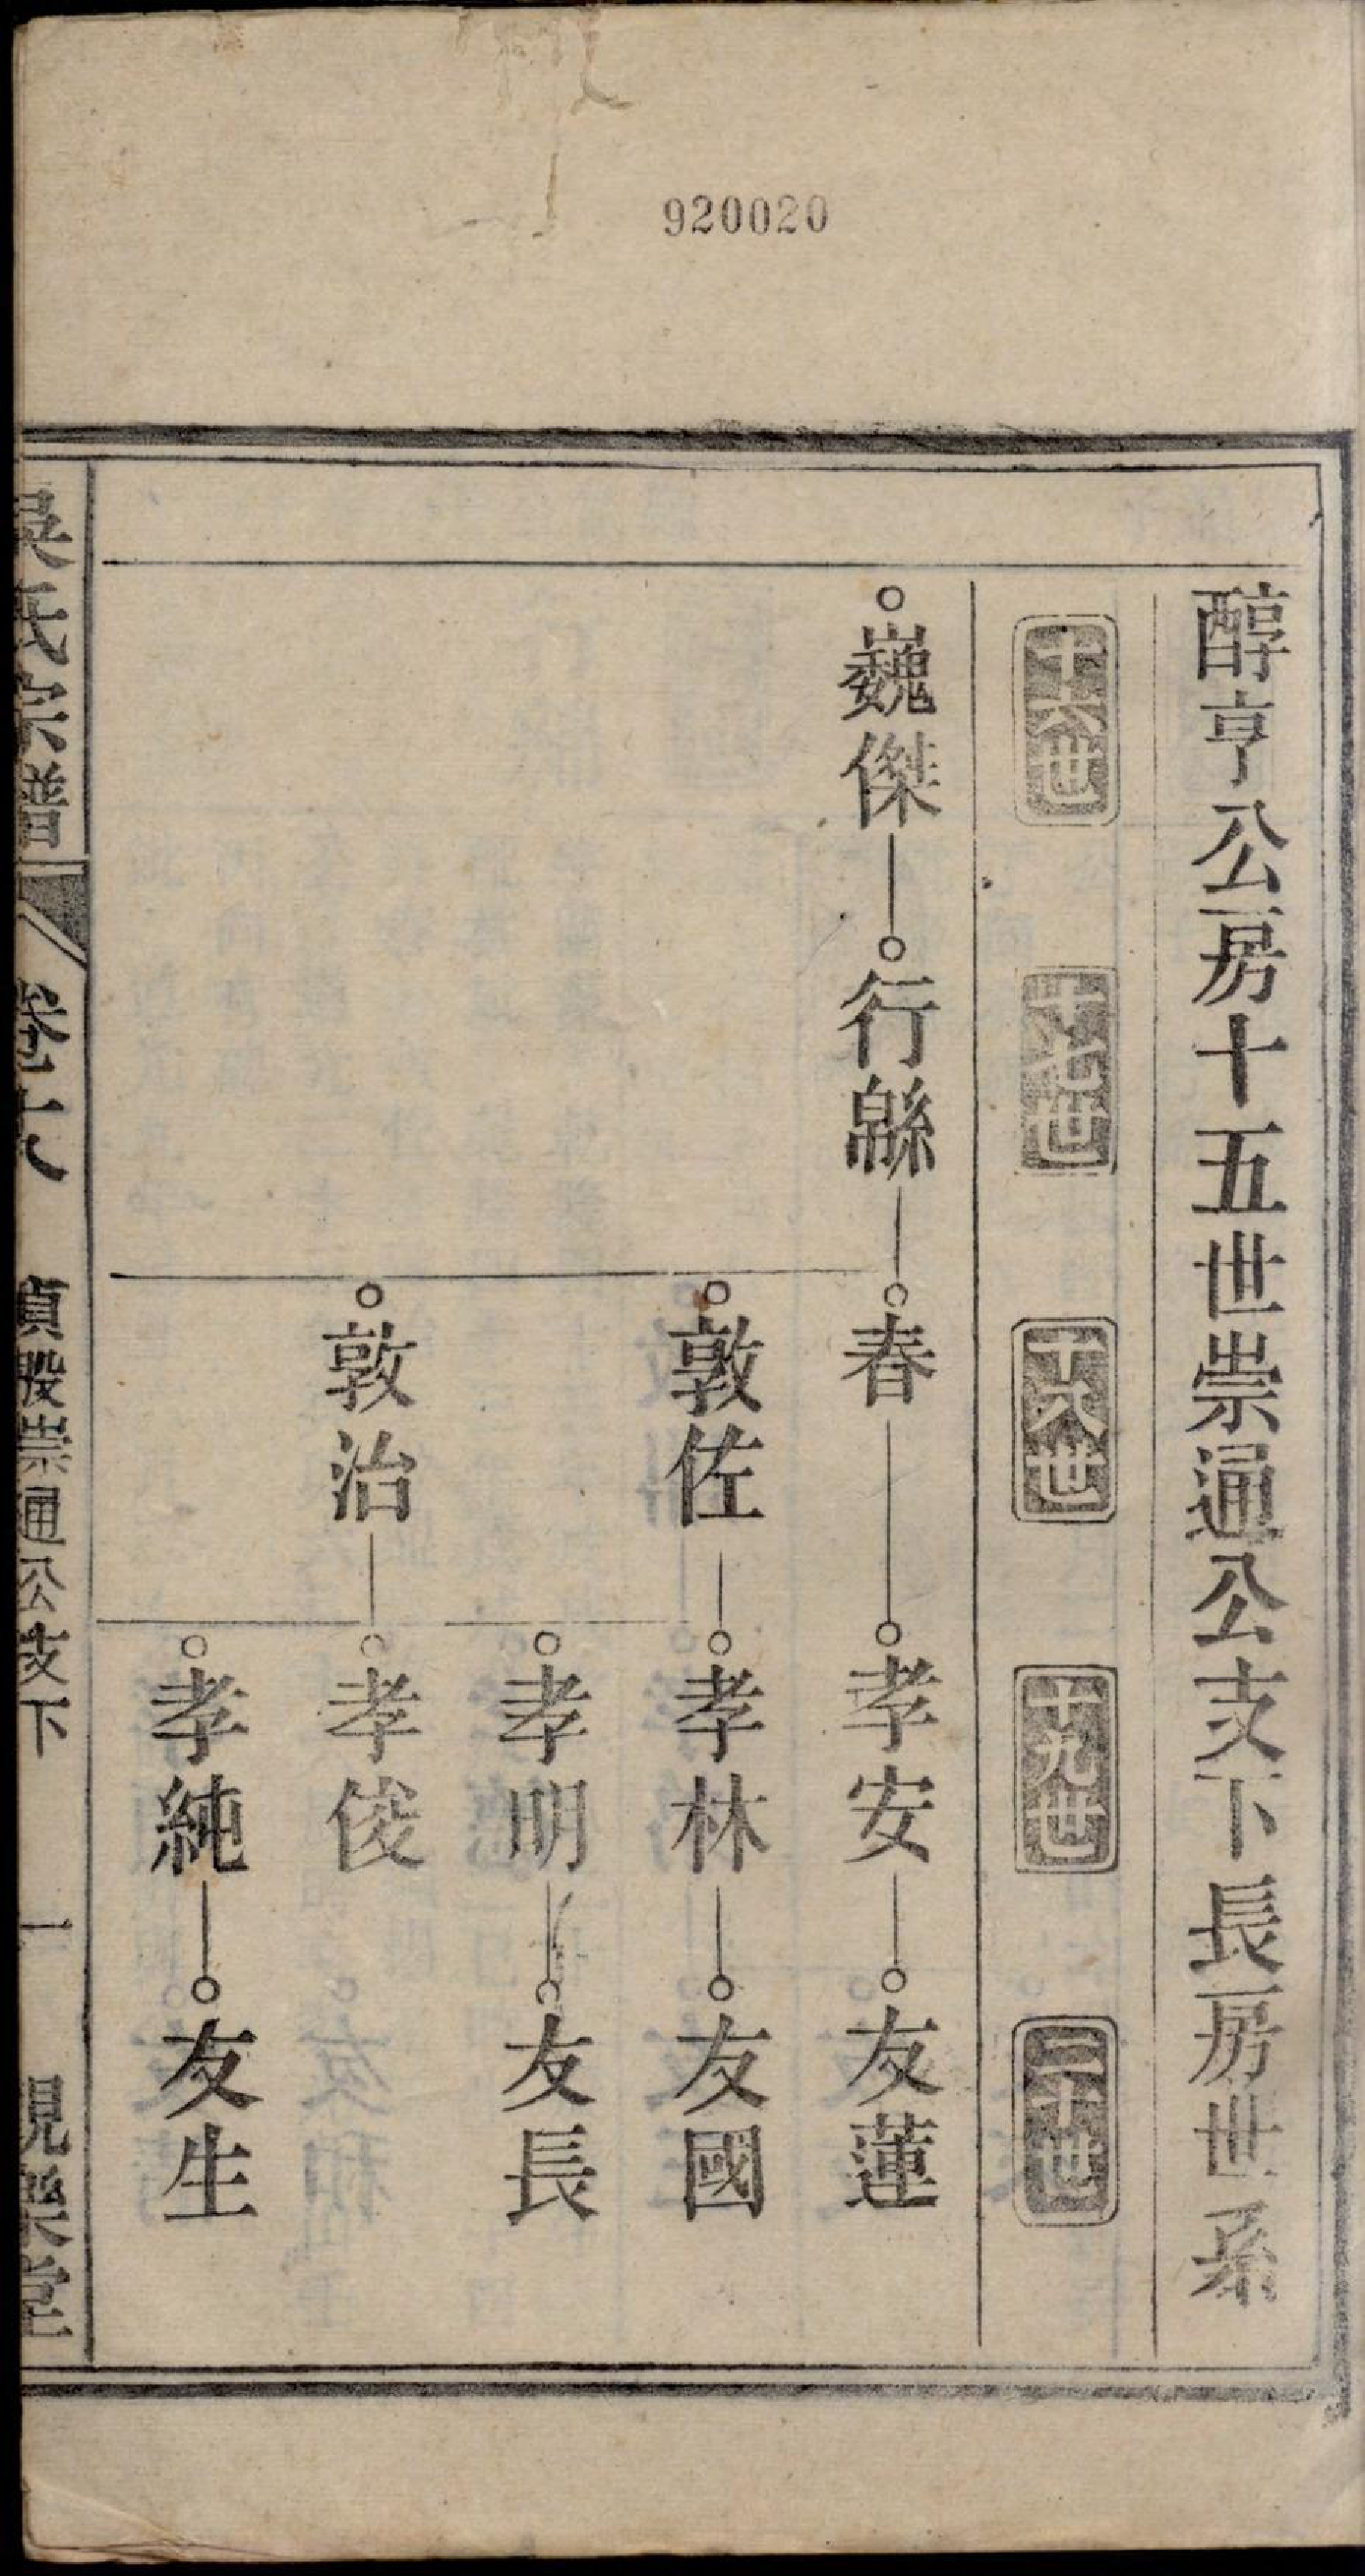 920020
醇亨公房十五世崇通公支下長房世系
十六世
十七世
十八世
十九世
二十世
巍傑
行緜
春
孝安
友蓮
敦佐
孝林
友國
孝明
友長
敦治
孝俊
孝純
友生
吳氏宗譜
卷十八
貞股崇通公支下
一